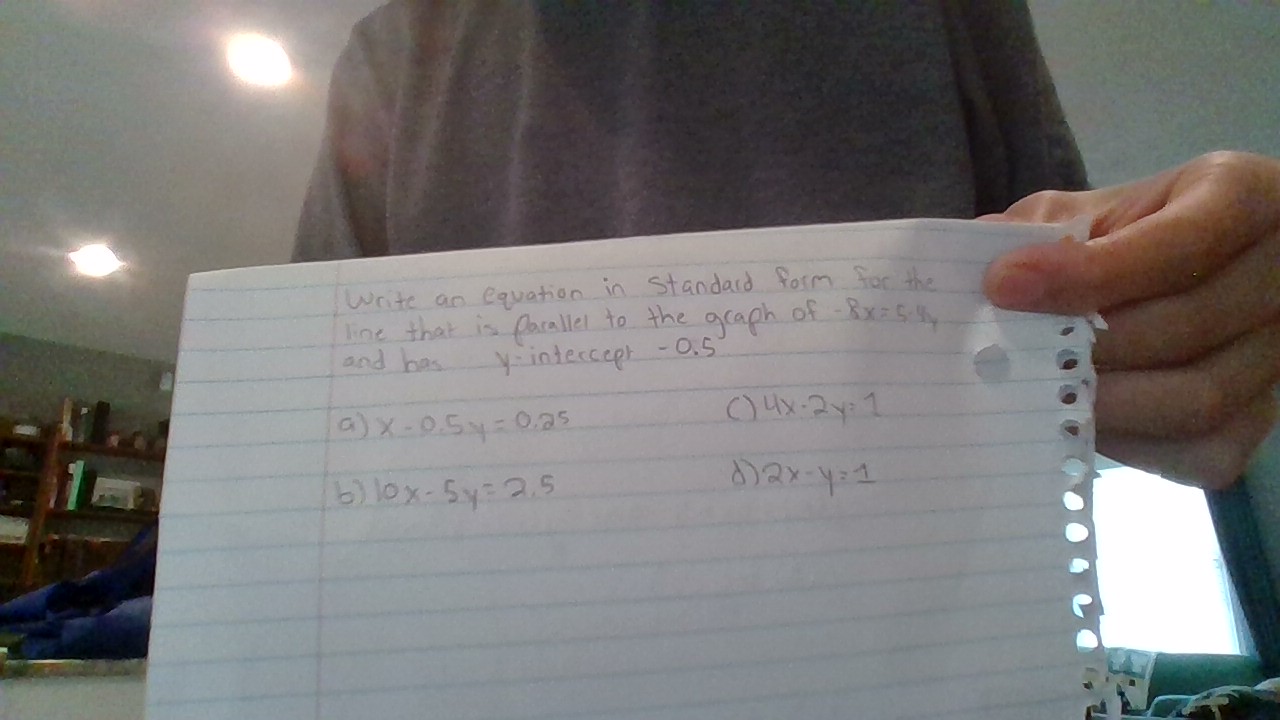 Write an equation in standard form for the
line that is parallel to the graph of -8x=5-4y
and has y-intercept -0.5
a) x-0.5y=0.25
c) 4x-2y=1
b) 10x-5y=2.5
d) 2x-y=1